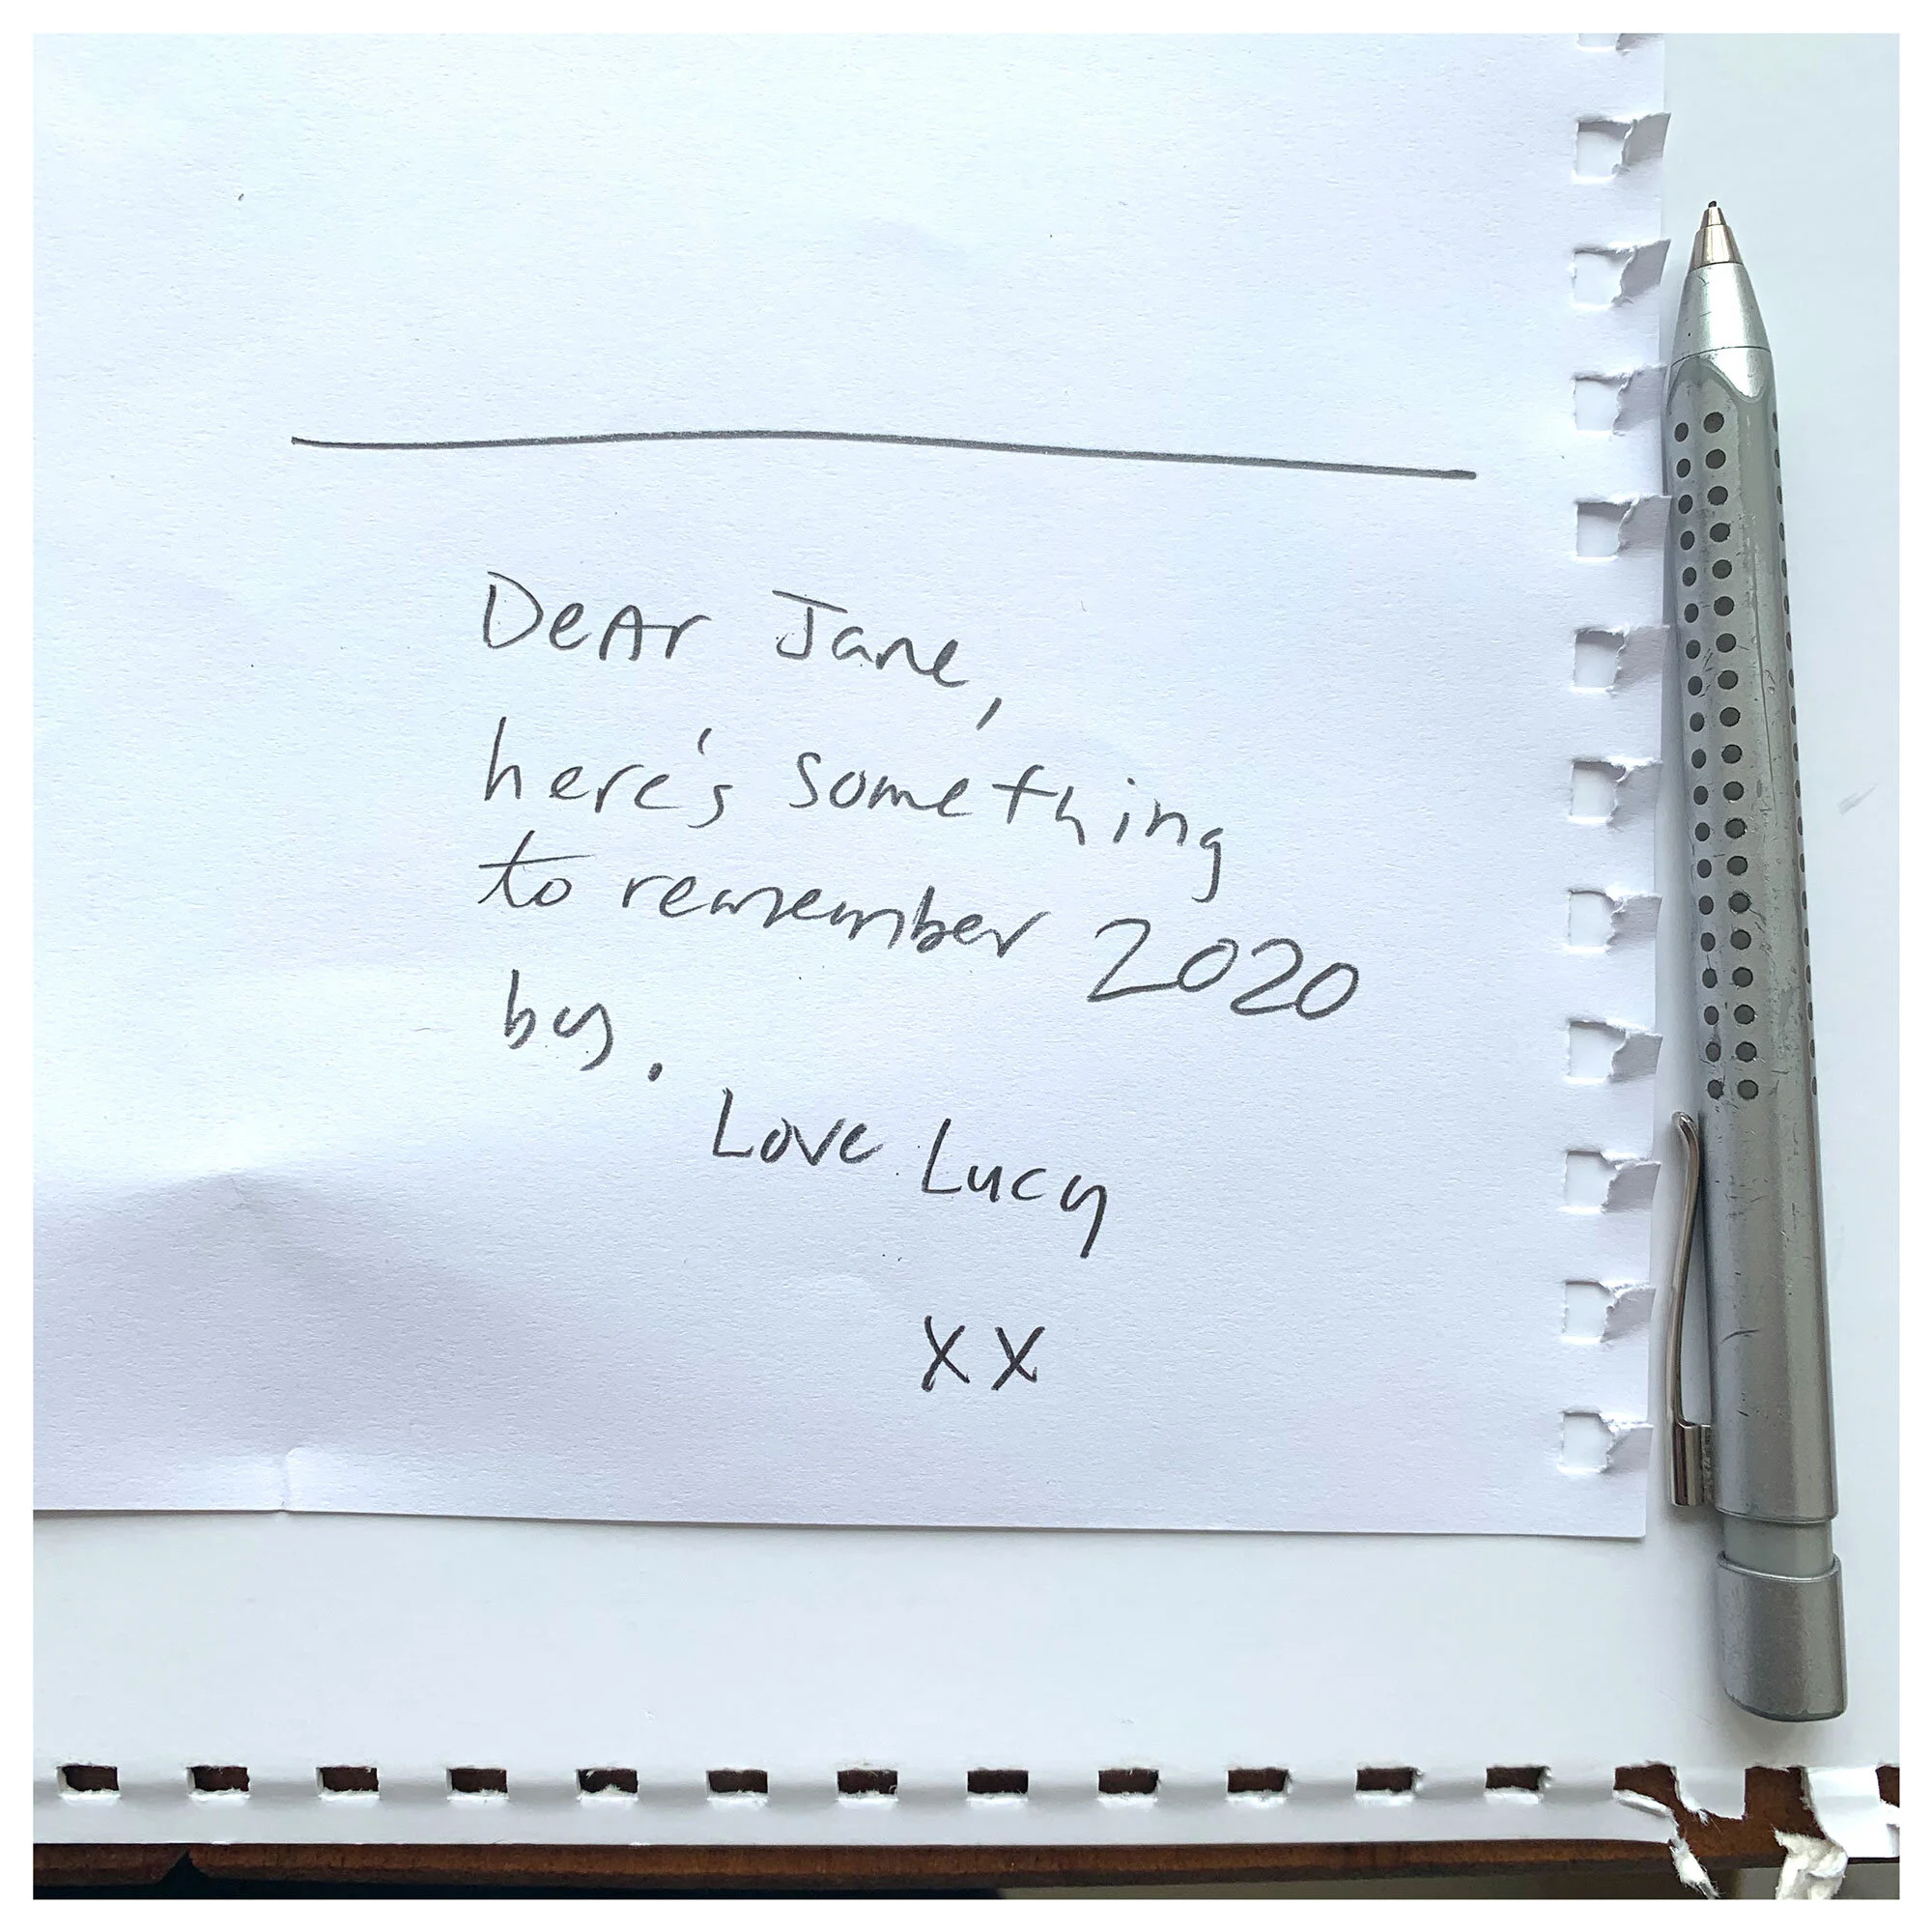 Dear Jane,
here's something
to remember 2020
by.
Love Lucy
xx